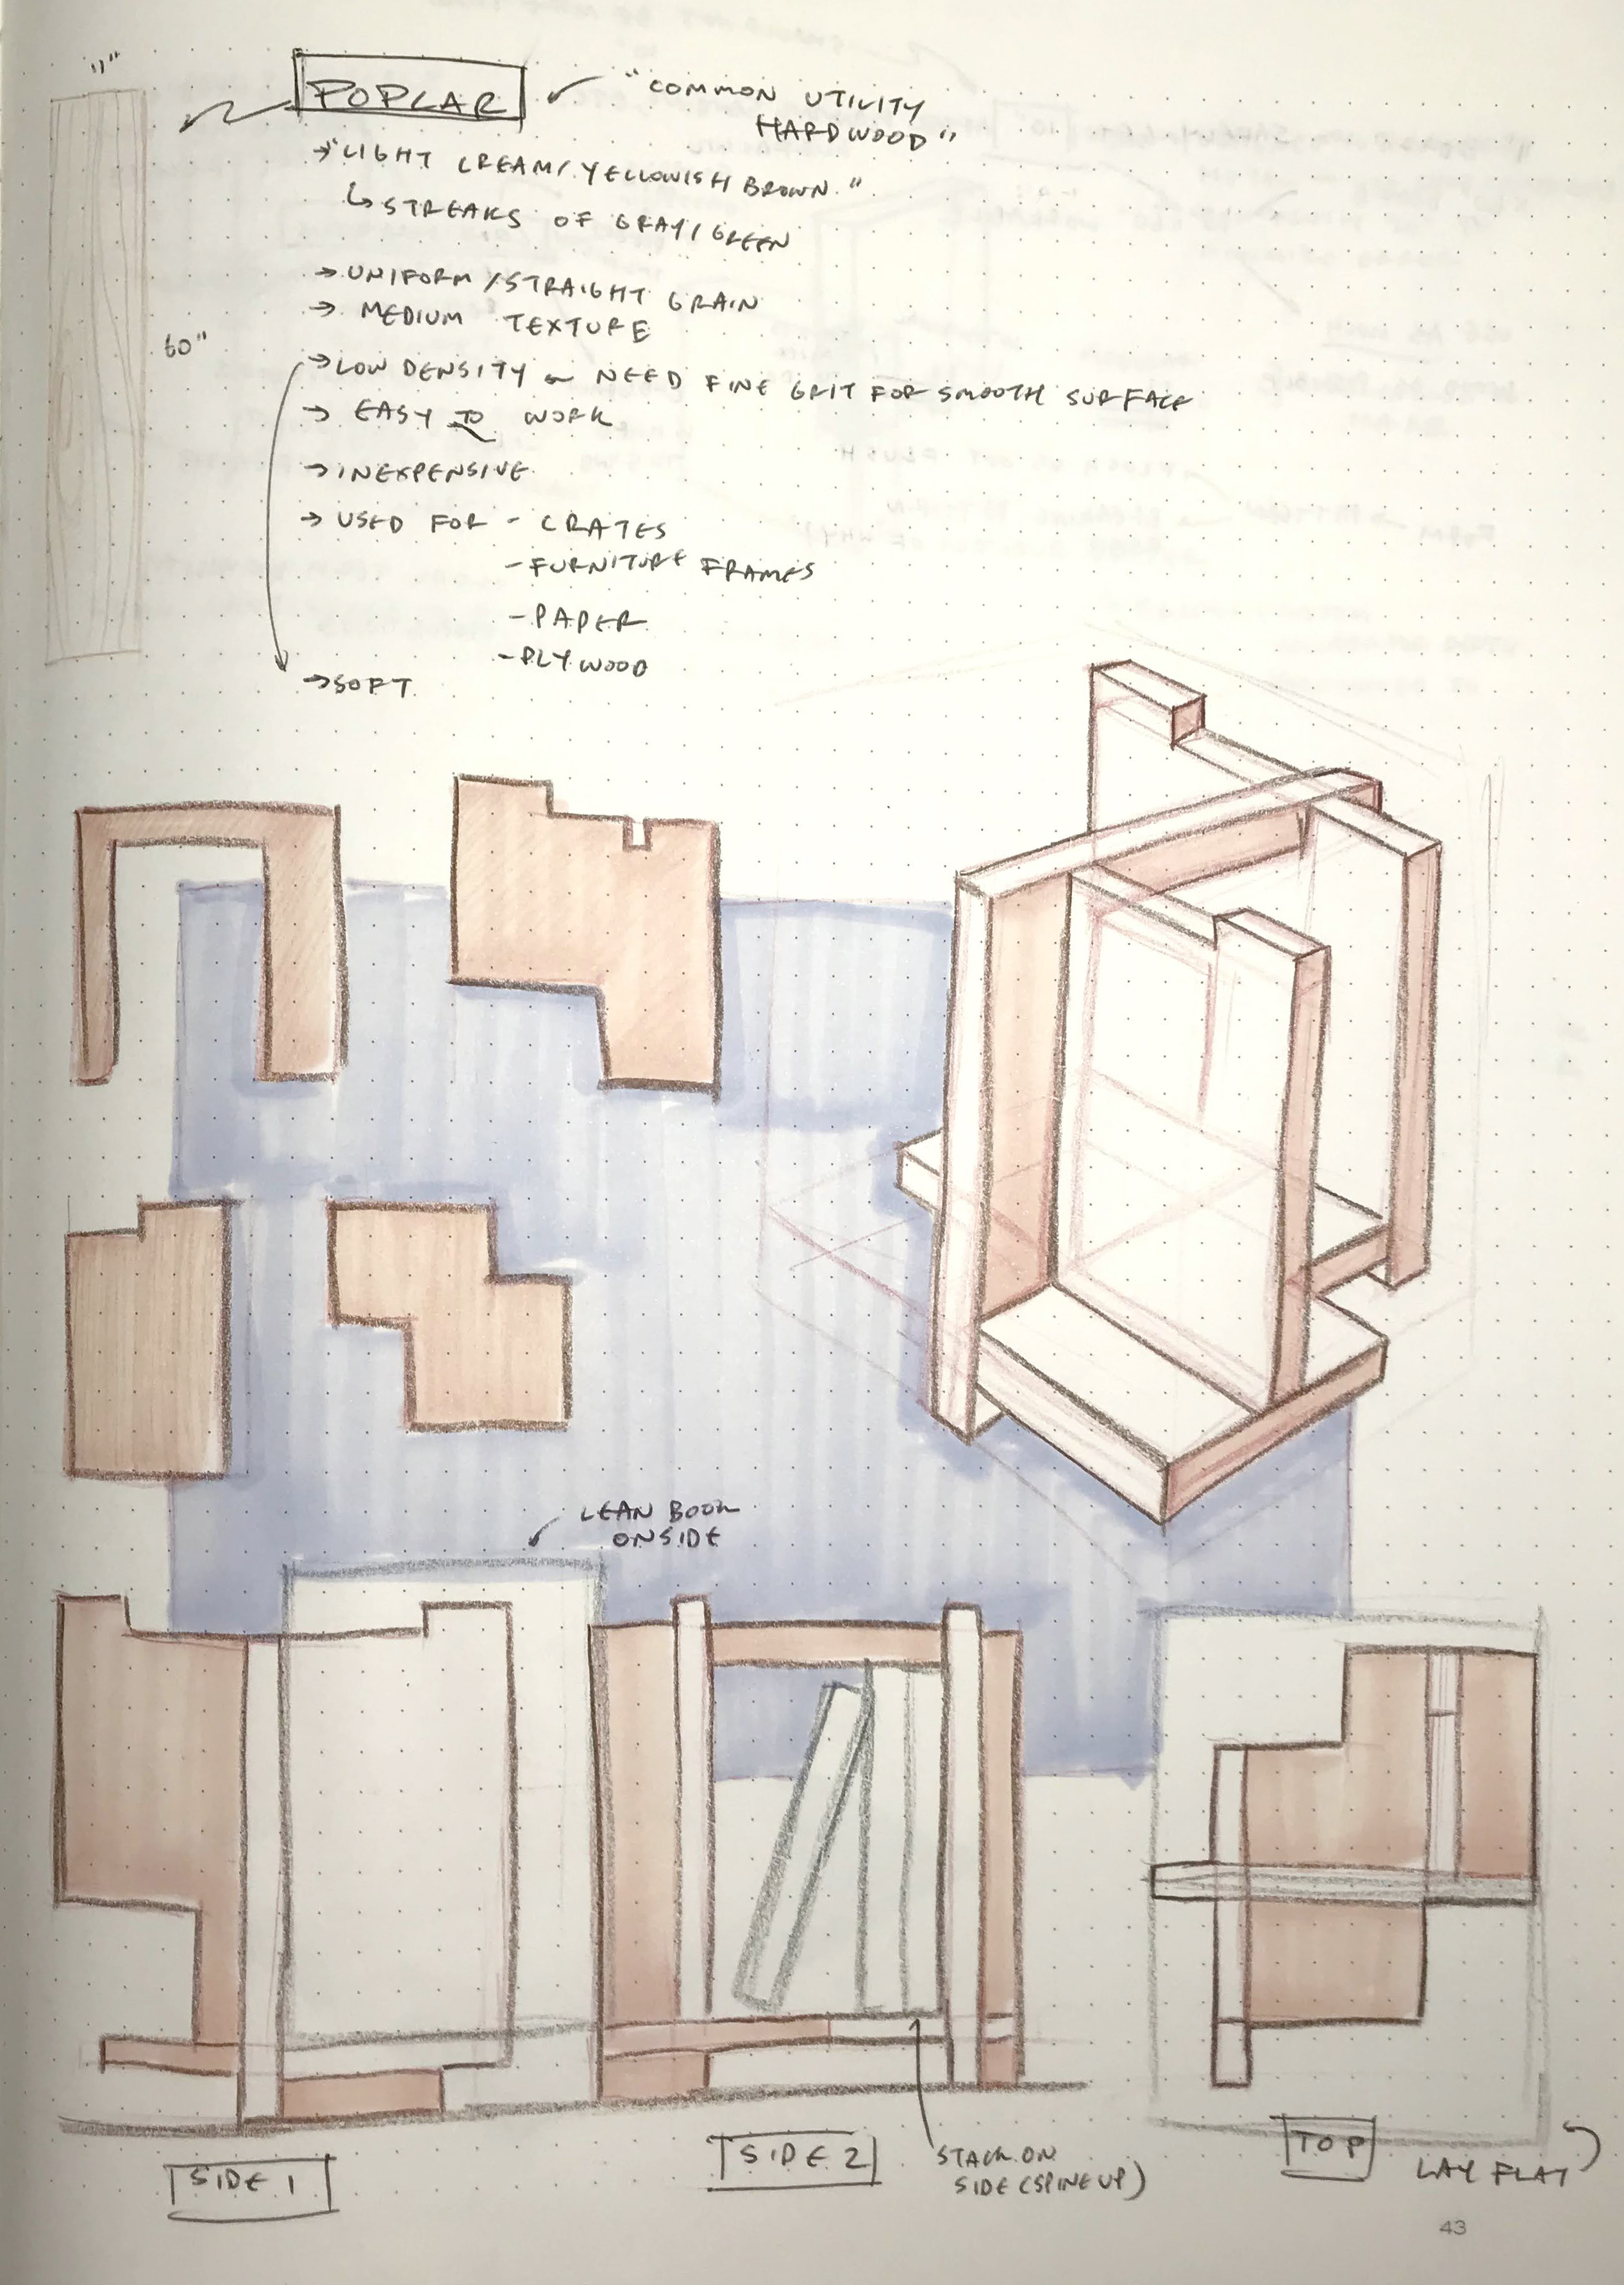 POPLAR
"COMMON UTILITY
HARDWOOD"
→"LIGHT CREAM/YELLOWISH BROWN."
↳STREAKS OF GRAY/GREEN
→UNIFORM/STRAIGHT GRAIN
→ MEDIUM TEXTURE
60"
→LOW DENSITY ~ NEED FINE GRIT FOR SMOOTH SURFACE
→ EASY TO WORK
→INEXPENSIVE
→ USED FOR - CRATES
-FURNITURE FRAMES
-PAPER
-PLYWOOD
→SOFT
LEAN BOOK
ON SIDE
SIDE 1
SIDE 2
STACK ON
SIDE (SPINE UP)
TOP
LAY FLAT
43